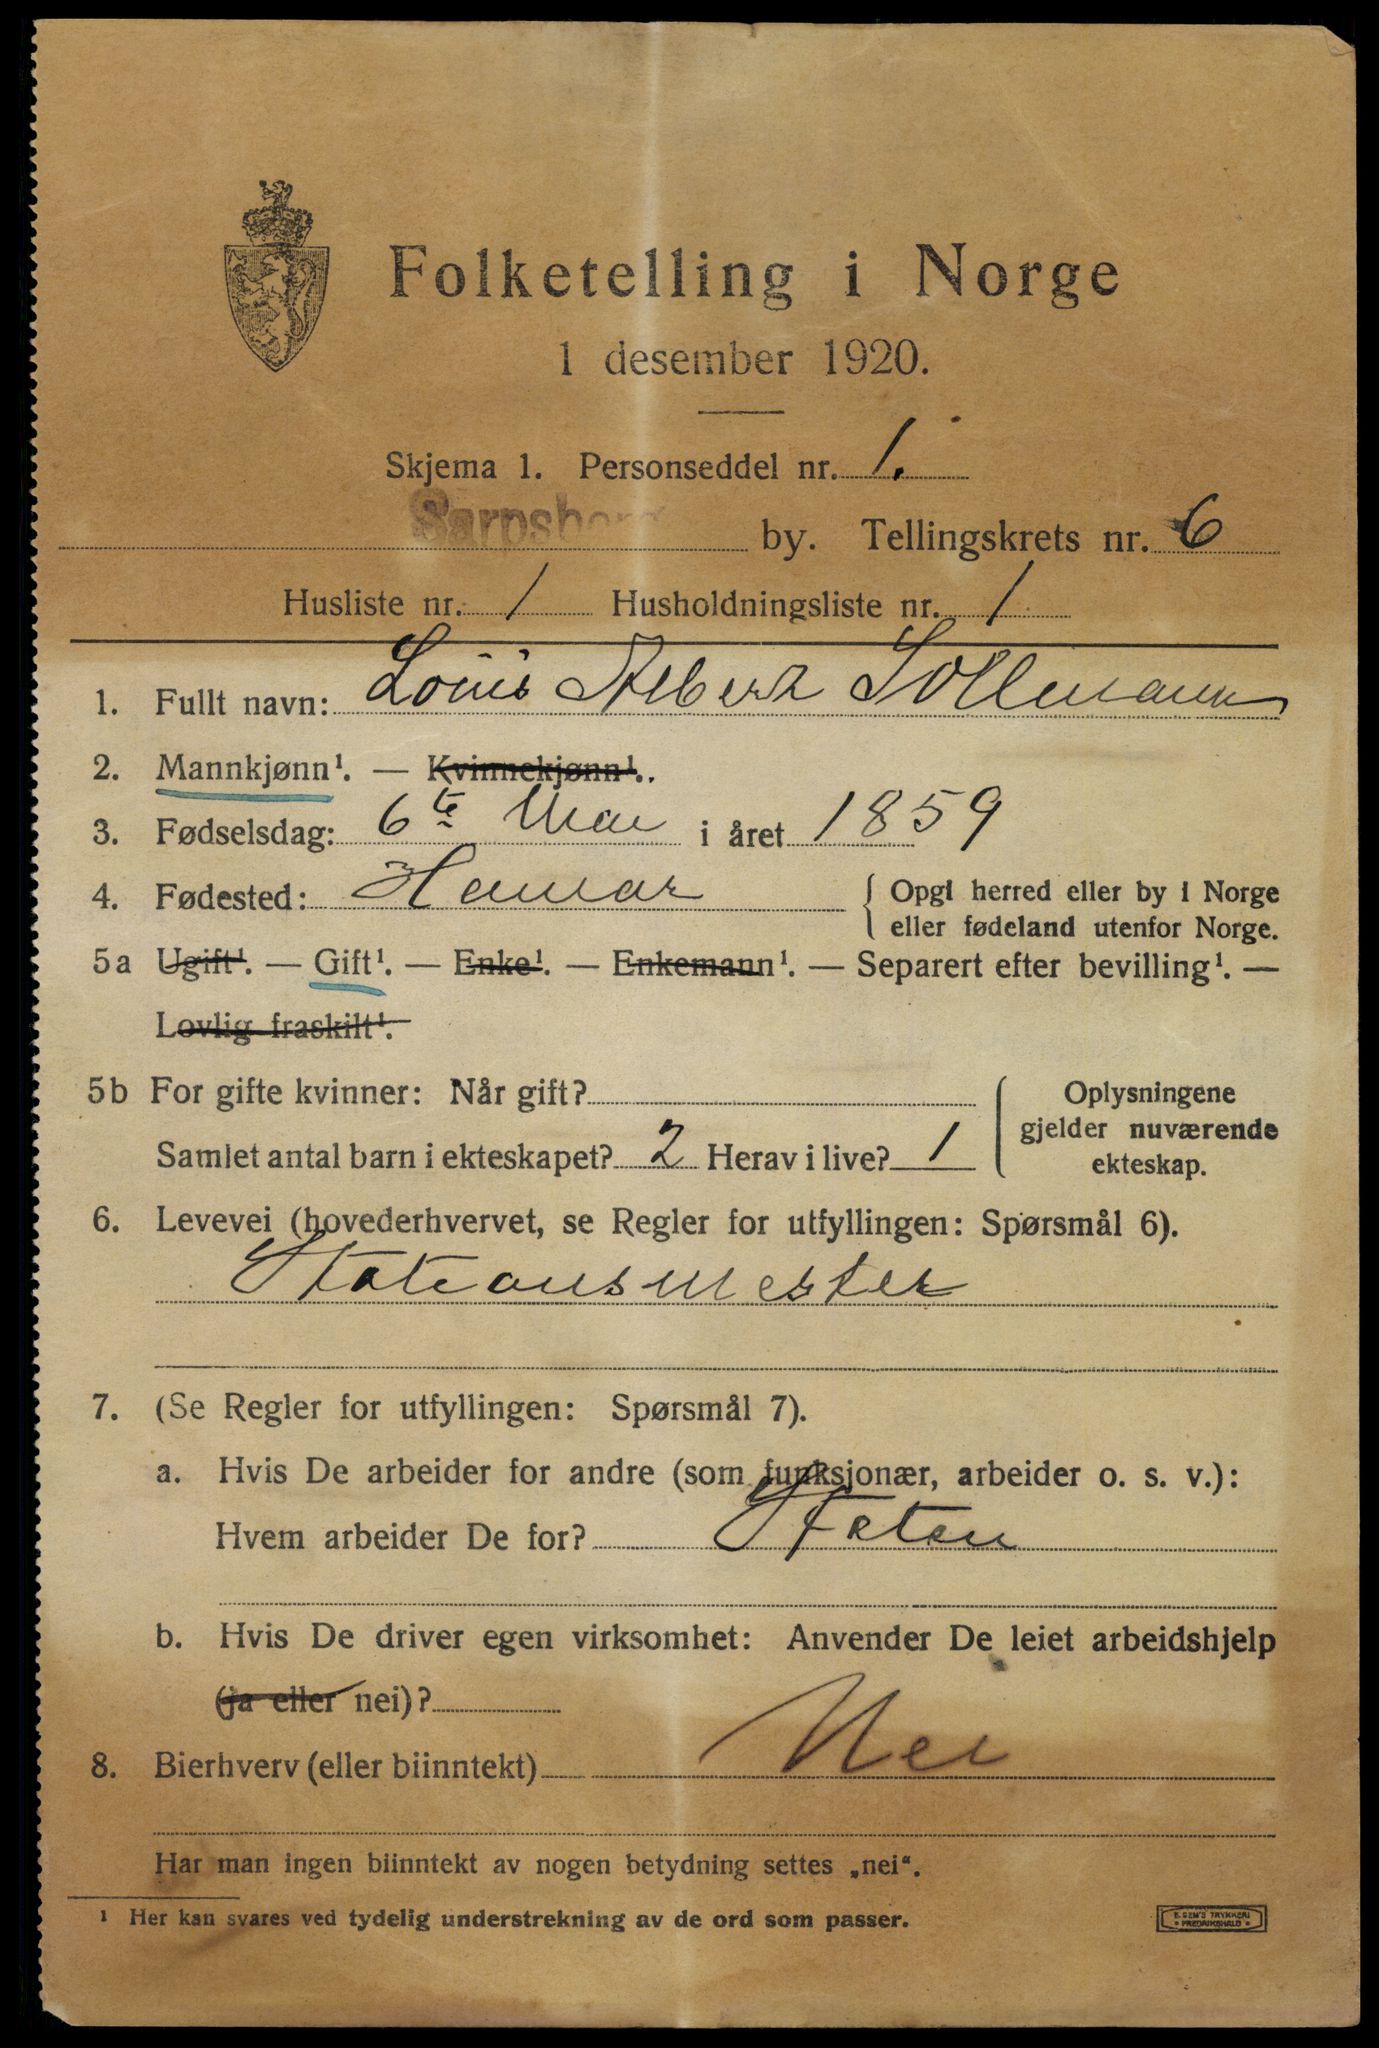 Folketelling i Norge
1 desember 1920.
Skjema 1. Personseddel nr. 1.
Sarpsborg by. Tellingskrets nr. 6
Husliste nr. 1 Husholdningsliste nr. 1
1. Fullt navn: Louis Albert Sollmann
2. Mannkjønn¹. — Kvinnekjønn¹.
3. Fødselsdag: 6te Mai i året 1859
4. Fødested: Hamar { Opgi herred eller by i Norge
eller fødeland utenfor Norge.
5a Ugift¹. — Gift¹. — Enke¹. — Enkemann¹. — Separert efter bevilling¹. —
Lovlig fraskilt¹.
5b For gifte kvinner: Når gift? { Oplysningene
gjelder nuværende
Samlet antal barn i ekteskapet? 2 Herav i live? 1 ekteskap.
6. Levevei (hovederhvervet, se Regler for utfyllingen: Spørsmål 6).
Stationsmester
7. (Se Regler for utfyllingen: Spørsmål 7).
a. Hvis De arbeider for andre (som funksjonær, arbeider o. s. v.):
Hvem arbeider De for? Staten
b. Hvis De driver egen virksomhet: Anvender De leiet arbeidshjelp
(ja eller nei)?
8. Bierhverv (eller biinntekt) Nei
Har man ingen biinntekt av nogen betydning settes „nei“.
¹ Her kan svares ved tydelig understrekning av de ord som passer.
E. SEM'S TRYKKERI
• FREDRIKSHALD •